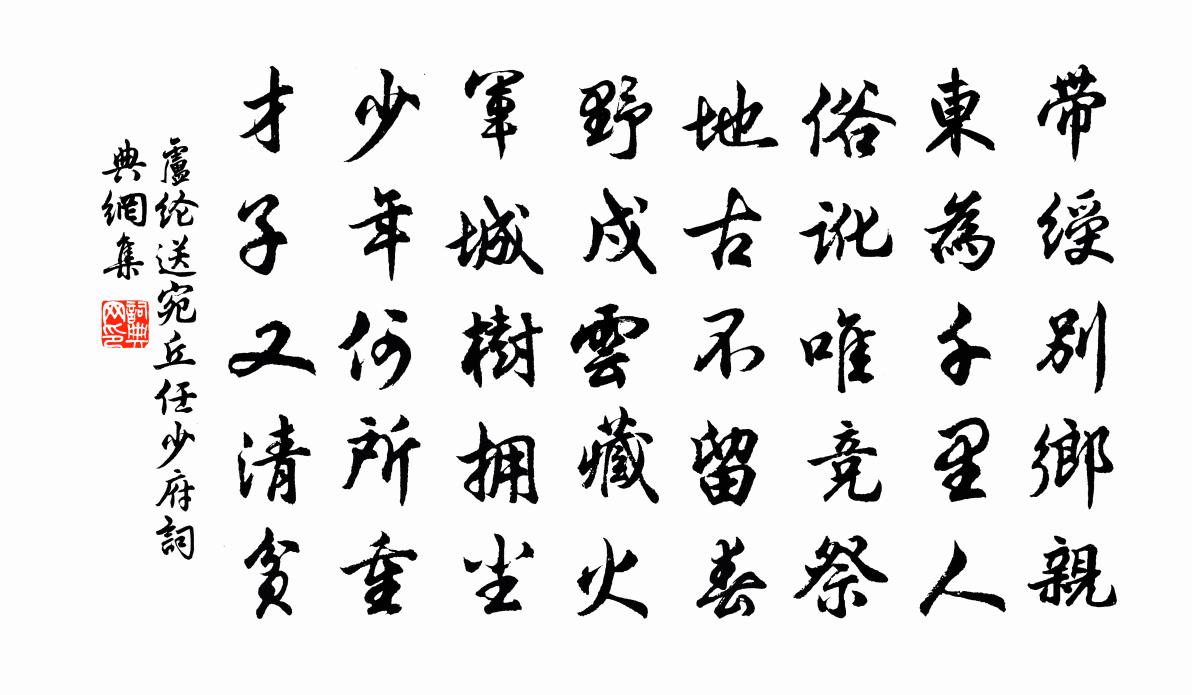 带綬別鄉親
東為千里人
俗訛唯竞祭
地古不留春
野戍雲藏火
軍城樹拥尘
少年何所重
才子又清貧
盧纶送宛丘任少府詞
典網集
詞典
网印